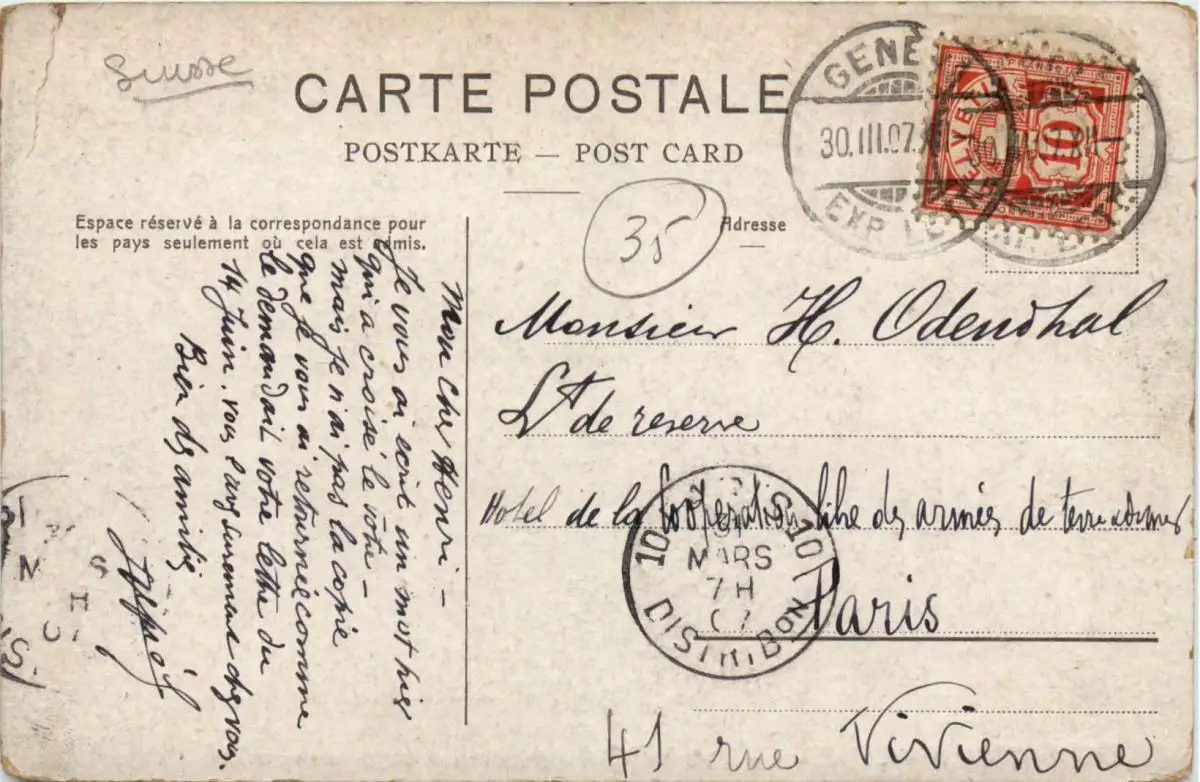 Suisse
CARTE POSTALE
POSTKARTE — POST CARD
GENÈ
30.III.07.
EXP. LE
HELVETIA
10
35
Espace réservé à la correspondance pour
les pays seulement où cela est admis.
Adresse
Mon cher Henri –
Je vous ai écrit un mot hier
qui a croisé le vôtre –
mais je n'ai pas la copie
que je vous ai retournée comme
le demandait votre lettre du
14 Juin. vous l'avez surement chez vous.
Bien des amitiés
Monsieur H. Odendhal
Lt de reserve
Hotel de la Cooperation libre des armées de terre & de mer
Paris
41 rue Vivienne
10 PARIS 10
31
MARS
7H
07
DISTRIBON